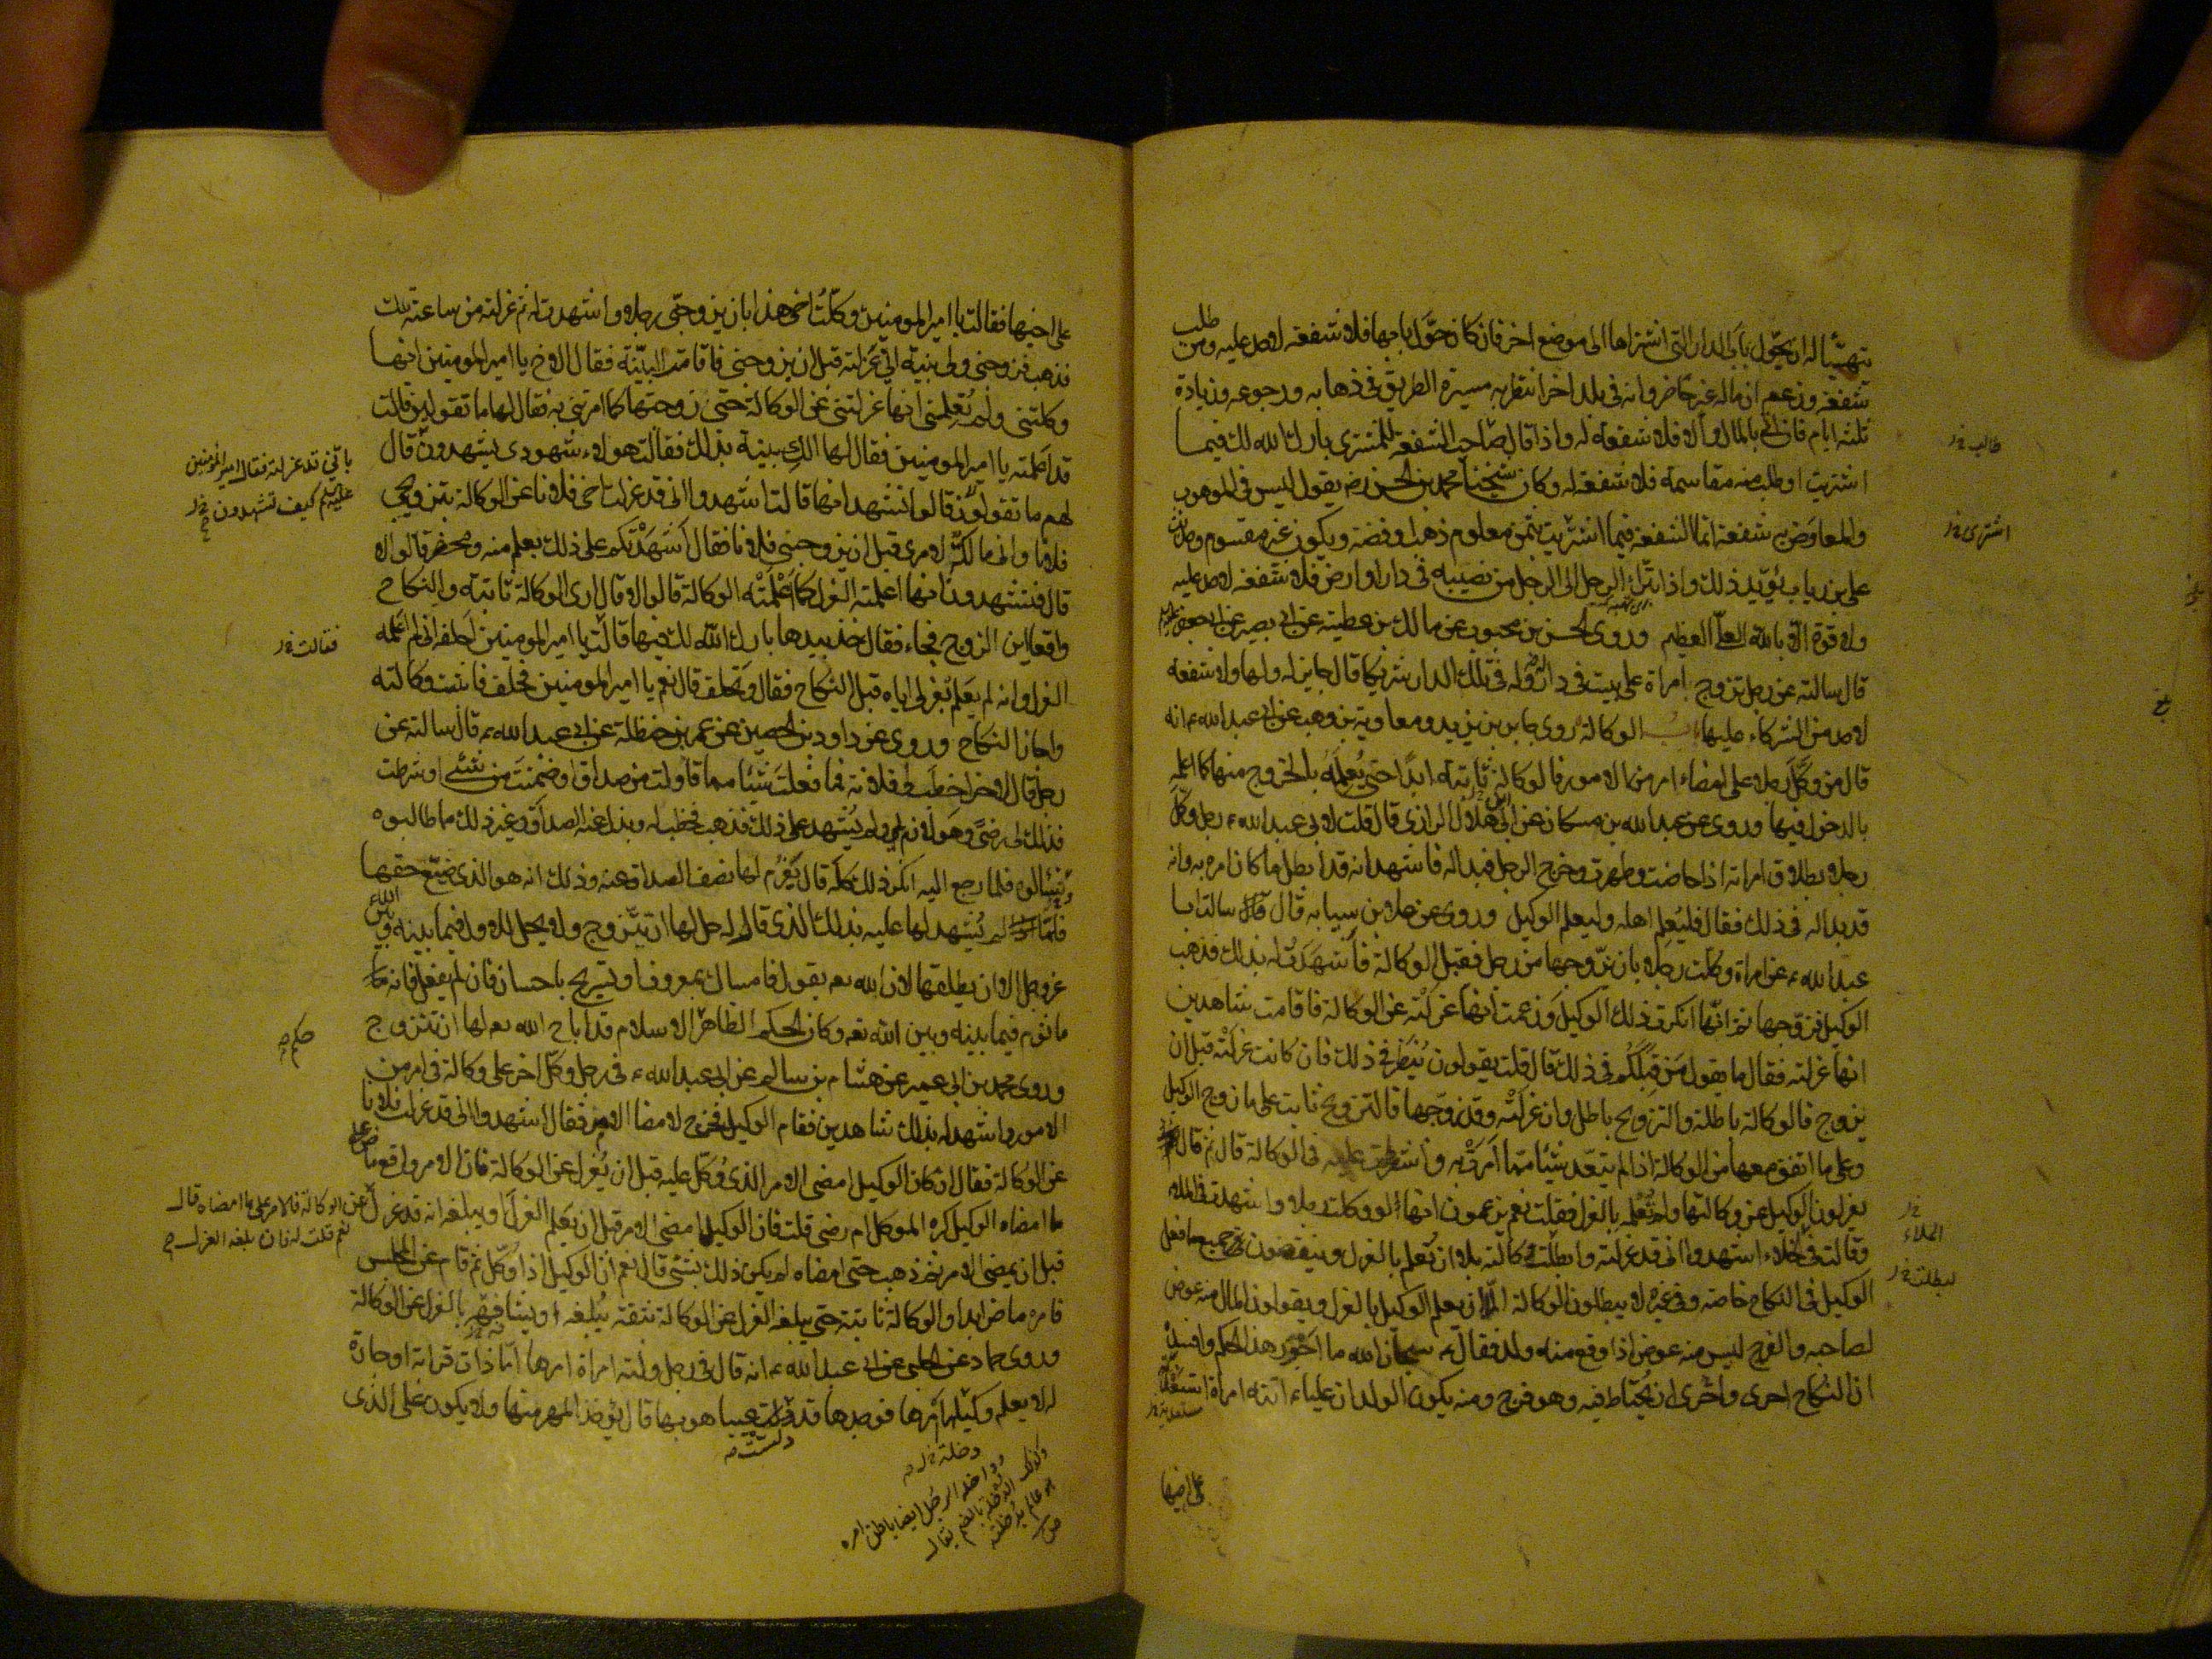 يتهيأ له ان يحول باب الدار التي اشتراها الى موضع اخر فان كان حول بابها فلا شفعة لاحد عليه ومن طلب
شفعة وزعم ان ماله غير حاضر وانه في بلد اخر انتظر به مسيرة الطريق في ذهابه ورجوعه وزيادة
ثلثة ايام فان اتى بالمال والا فلا شفعة له واذا قال صاحب الشفعة للمشتري بارك الله لك فيما
اشتريت او طلب منه مقاسمة فلا شفعة له وكان شيخنا محمد بن الحسن رضه يقول ليس في الموهوب
والمعاوض به شفعة انما الشفعة فيما اشتريت بثمن معلوم ذهب او فضة ويكون غير مقسوم وحديث
علي بن رياب يؤيد ذلك واذا تبرك الرجل الى الرجل من نصيبه في دار او ارض فلا شفعة لاحد عليه
ولا قوة الا بالله العلي العظيم وروى الحسن بن محبوب عن مالك بن عطية عن ابي بصير عن ابي جعفر
قال سالته عن رجل تزوج امراة على بيت في دار وله في تلك الدار شركا قال جايز له ولها ولا شفعة
لاحد من الشركاء عليها الوكالة روى جابر بن يزيد ومعاوية بن وهب عن ابي عبد الله ع انه
قال من وكل رجلا على امضاء امر من الامور فالوكالة ثابتة ابدا حتى يعلمه بالخروج منها كما اعلمه
بالدخول فيها وروى عن عبد الله بن مسكان عن ابي هلال الرازي قال قلت لابي عبد الله ع رجل وكل
رجلا بطلاق امراته اذا حاضت وطهرت وخرج الرجل فبدا له فاشهد انه قد ابطل ما كان امره به وانه
قد بدا له في ذلك فقال فليعلم اهله وليعلم الوكيل وروى عن علا بن سيابه قال سالت ابا
عبد الله ع عن امراة وكلت رجلا بان يزوجها من رجل فقبل الوكالة فاشهدت له بذلك فذهب
الوكيل فزوجها ثم انها انكرت ذلك الوكيل وزعمت انها عزلته عن الوكالة فاقامت شاهدين
انها عزلته فقال ما يقول من قبلكم في ذلك قال قلت يقولون ينظر في ذلك فان كانت عزلته قبل ان
يزوج فالوكالة باطلة والتزويج باطل وان عزلته وقد زوجها فالتزويج ثابت على ما زوج الوكيل
وعلى ما اتفق معها من الوكالة اذا لم يتعد شيئا مما امرت به واشترطت عليه في الوكالة قال ثم قال
يعزلون الوكيل عن وكالتها ولم تعلمه بالعزل فقلت نعم يزعمون انها لو وكلت رجلا واشهدت في الملاء
وقالت في الخلاء اشهدوا اني قد عزلته وابطلت وكالته بلا ان تعلم بالعزل وينقضون جميع ما فعل
الوكيل في النكاح خاصة وفي غيره لا يبطلون الوكالة الا ان يعلم الوكيل بالعزل ويقولون المال منه عوض
لصاحبه والفرج ليس منه عوض اذا وقع منه ولد فقال ع سبحان الله ما اجور هذا الحكم وافسده
ان النكاح احرى واحرى ان يحتاط فيه وهو فرج ومنه يكون الولد ان عليا ع اتته امراة
على اخيها
طالب خ ل
اشترى خ ل
الملاء
ابطلت خ ل
على اخيها فقالت يا امير المومنين وكلت اخي هذا بان يزوجني رجلا واشهدت له ثم عزلته من ساعته تلك
فذهب فزوجني ولي بينة اني عزلته قبل ان يزوجني فاقامت البينة فقال الاخ يا امير المومنين انها
وكلتني ولم تعلمني انها عزلتني عن الوكالة حتى زوجتها كما امرتني به فقال لها ما تقولين قالت
قد اعلمته يا امير المومنين فقال لها الك بينة بذلك فقالت هولاء شهودي يشهدون قال
لهم ما تقولون قالوا نشهد انها قالت اشهدوا اني قد عزلت اخي فلانا عن الوكالة بتزويجي
فلانا واني مالكة لامري قبل ان يزوجني فلانا فقال اشهدتكم على ذلك بعلم منه ومحضر قالوا لا
قال فتشهدون انها اعلمته العزل كما اعلمته الوكالة قالوا لا قال ارى الوكالة ثابتة والنكاح
واقعا اين الزوج فجاء فقال خذ بيدها بارك الله لك فيها قالت يا امير المومنين احلفه اني لم اعلمه
العزل وانه لم يعلم بعزلي اياه قبل النكاح فقال وتحلف قال نعم يا امير المومنين فحلف فاثبت وكالته
واجاز النكاح وروى عن داود بن الحصين عن عمر بن حنظلة عن ابي عبد الله ع قال سالته عن
رجل قال لاخر اخطب لي فلانة فما فعلت شيئا مما قاولت من صداق او ضمنت من شيء او شرطت
فذلك لي رضى وهو لازم لي ولم يشهد على ذلك فذهب فخطب له وبذل عنه الصداق وغير ذلك مما طالبوه
وسالوه فلما رجع اليه انكر ذلك كله قال يغرم لها نصف الصداق عنه وذلك انه هو الذي ضيع حقها
فلما لم يشهد لها عليه بذلك الذي قال له حل لها ان تتزوج ولا يحل للاول فيما بينه وبين الله
عز وجل الا ان يطلقها لان الله تعه يقول فامساك بمعروف او تسريح باحسان فان لم يفعل فانه
ماثوم فيما بينه وبين الله تعه وكان الحكم الظاهر الاسلام قد اباح الله تعه لها ان تتزوج
وروى محمد بن ابي عمير عن هشام بن سالم عن ابي عبد الله ع في رجل وكل اخر على وكالة في امر من
الامور واشهد له بذلك شاهدين فقام الوكيل فخرج لامضا الامر فقال اشهدوا اني قد عزلت فلانا
عن الوكالة فقال ان كان الوكيل امضى الامر الذي وكل عليه قبل ان يعزل عن الوكالة فان الامر واقع ماض على
ما امضاه الوكيل كره الموكل ام رضى قلت فان الوكيل امضى الامر قبل ان يعلم العزل او يبلغه انه قد عزل عن الوكالة فالامر على ما امضاه قال
نعم قلت له فان بلغه العزل
قبل ان يمضي الامر ثم ذهب حتى امضاه لم يكن ذلك بشيء قال نعم ان الوكيل اذا وكل ثم قام عن المجلس
فامره ماض ابدا والوكالة ثابتة حتى يبلغه العزل عن الوكالة بثقة يبلغه او يشافهه بالعزل عن الوكالة
وروى حماد عن الحلبي عن ابي عبد الله ع انه قال في رجل ولته امراة امرها اما ذات قرابة او جارة
له لا يعلم دخيلة امرها فوجدها قد دلست عيبا هو بها قال يؤخذ المهر منها ولا يكون على الذي
باني قد عزلته فقال امير المومنين
كيف تشهدون خ ل
فقالت خ ل
حكم
دخلة خ ل